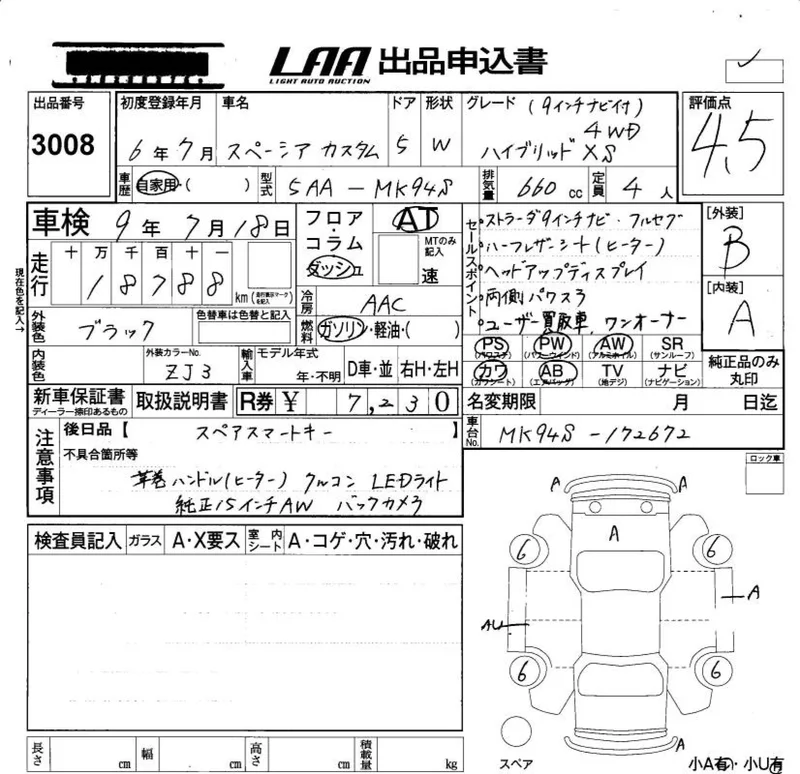 LAA 出品申込書
LIGHT AUTO AUCTION
出品番号 3008
初度登録年月 6年7月
車名 スペーシア カスタム
ドア 5
形状 W
グレード (9インチナビ付)
4WD
ハイブリッド XS
評価点 4.5
車歴 自家用・( )
型式 5AA-MK94S
排気量 660cc
定員 4人
車検 9年7月18日
フロア・コラム
ダッシュ
AT
MTのみ記入
速
セールスポイント
ストラーダ9インチナビ・フルセグ
ハーフレザーシート(ヒーター)
ヘッドアップディスプレイ
両側パワスラ
ユーザー買取車, ワンオーナー
[外装]
B
[内装]
A
現在色を記入→
走行 十万千百十一
18788 km (走行表示マークを記入)
冷房 AAC
燃料 ガソリン・軽油・( )
外装色 ブラック
色替車は色替と記入
内装色
外装カラーNo. ZJ3
輸入車 モデル年式
年・不明
D車・並 右H・左H
PS (パワステ) PW (パワーウインド) AW (アルミホイル) SR (サンルーフ)
カワ (カワシート) AB (エアバッグ) TV (地デジ) ナビ (ナビゲーション)
純正品のみ
丸印
新車保証書
ディーラー捺印あるもの
取扱説明書
R券 ¥ 7,230
名変期限 月 日迄
車台No. MK94S-172672
注意事項
後日品【 スペアスマートキー 】
不具合箇所等
革巻ハンドル(ヒーター) クルコン LEDライト
純正15インチAW バックカメラ
ロック車
検査員記入 ガラス A・X要ス 室内シート A・コゲ・穴・汚れ・破れ
A A
A
6 6
A
AU
6 6
A
スペア
小A有・小U有
長さ cm 幅 cm 高さ cm 積載量 kg